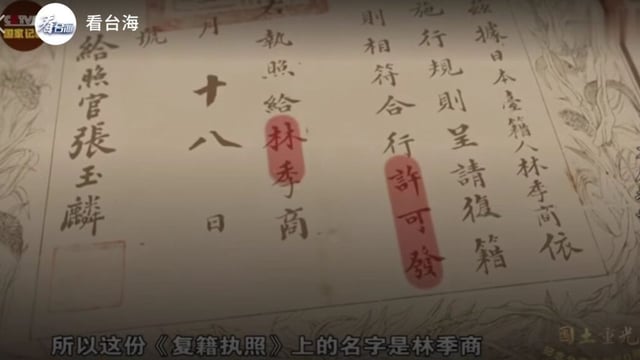 CCTV
国家记
看台海
茲據日本臺籍人林季商依
施行規則呈請復籍
則相符合行許可發
執照給林季商
月十八日
號
給照官張玉麟
国土重光
所以这份《复籍执照》上的名字是林季商